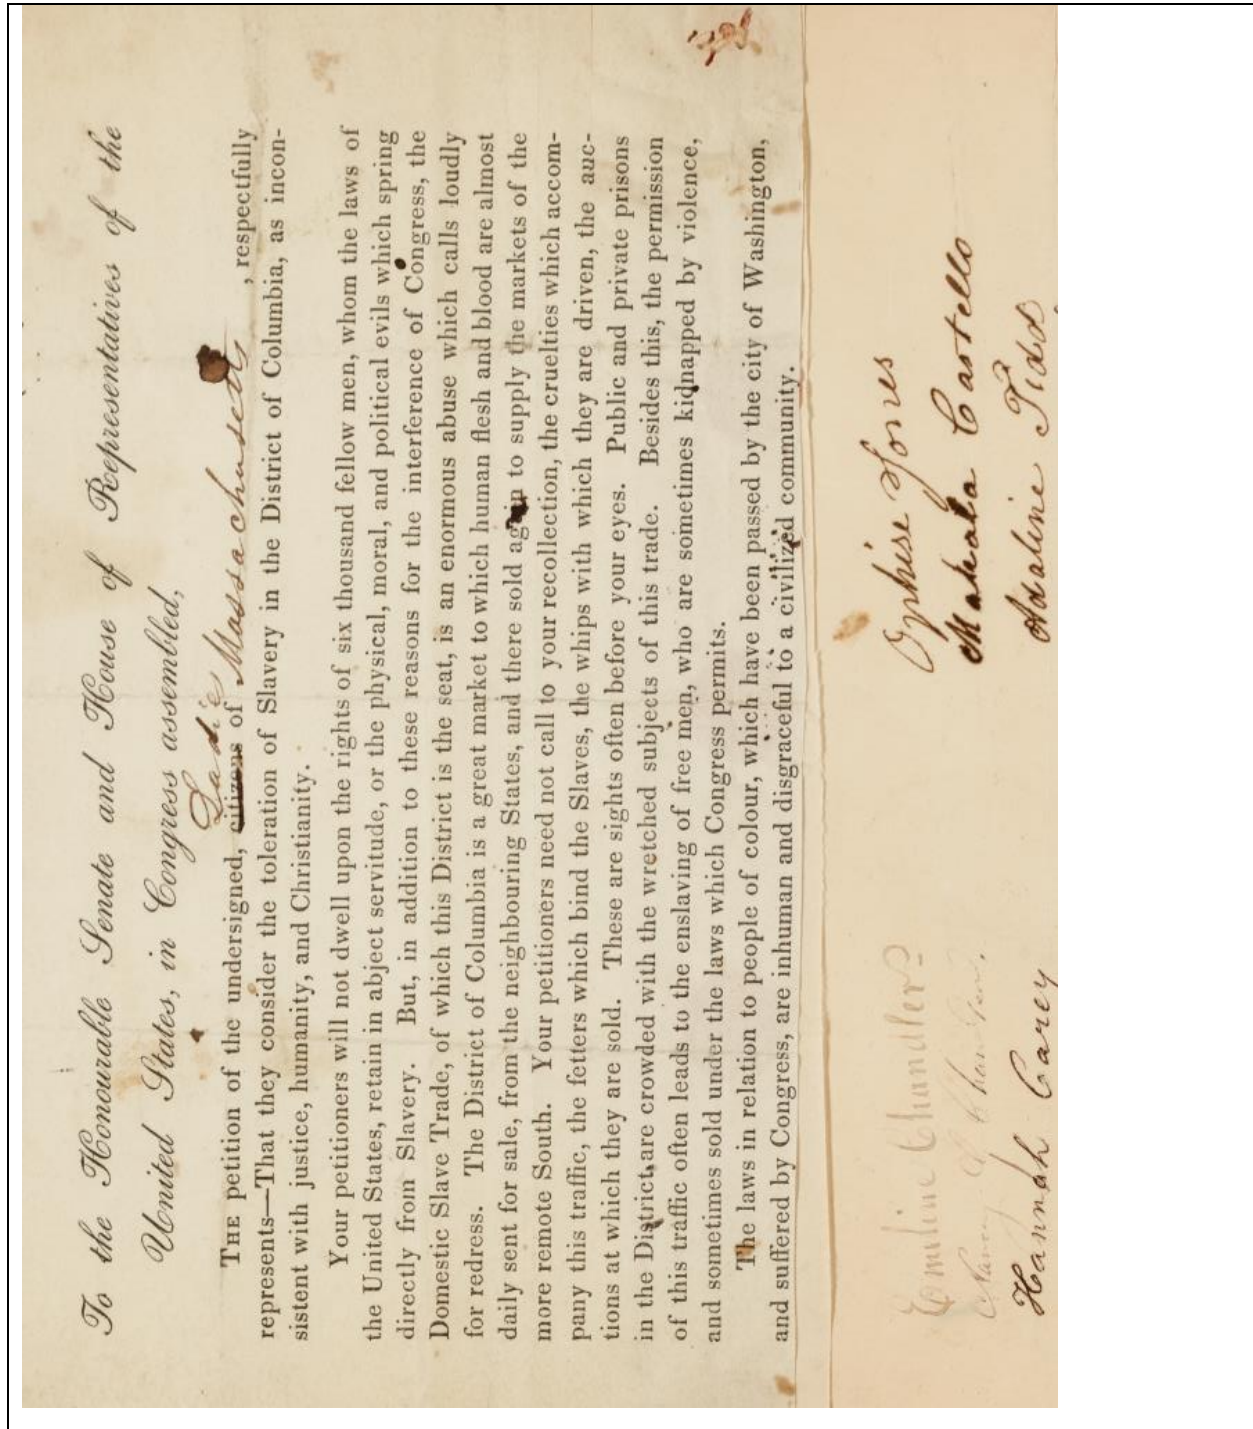 To the Honourable Senate and House of Representatives of the
United States, in Congress assembled,
Ladies
THE petition of the undersigned, citizens of Massachusetts, respectfully
represents—That they consider the toleration of Slavery in the District of Columbia, as incon-
sistent with justice, humanity, and Christianity.
Your petitioners will not dwell upon the rights of six thousand fellow men, whom the laws of
the United States, retain in abject servitude, or the physical, moral, and political evils which spring
directly from Slavery. But, in addition to these reasons for the interference of Congress, the
Domestic Slave Trade, of which this District is the seat, is an enormous abuse which calls loudly
for redress. The District of Columbia is a great market to which human flesh and blood are almost
daily sent for sale, from the neighbouring States, and there sold again to supply the markets of the
more remote South. Your petitioners need not call to your recollection, the cruelties which accom-
pany this traffic, the fetters which bind the Slaves, the whips with which they are driven, the auc-
tions at which they are sold. These are sights often before your eyes. Public and private prisons
in the District, are crowded with the wretched subjects of this trade. Besides this, the permission
of this traffic often leads to the enslaving of free men, who are sometimes kidnapped by violence,
and sometimes sold under the laws which Congress permits.
The laws in relation to people of colour, which have been passed by the city of Washington,
and suffered by Congress, are inhuman and disgraceful to a civilized community.
Emiline Chandler Ophise Jones
Nancy Chandler Mahala Castello
Hannah Carey Adaline Tidd